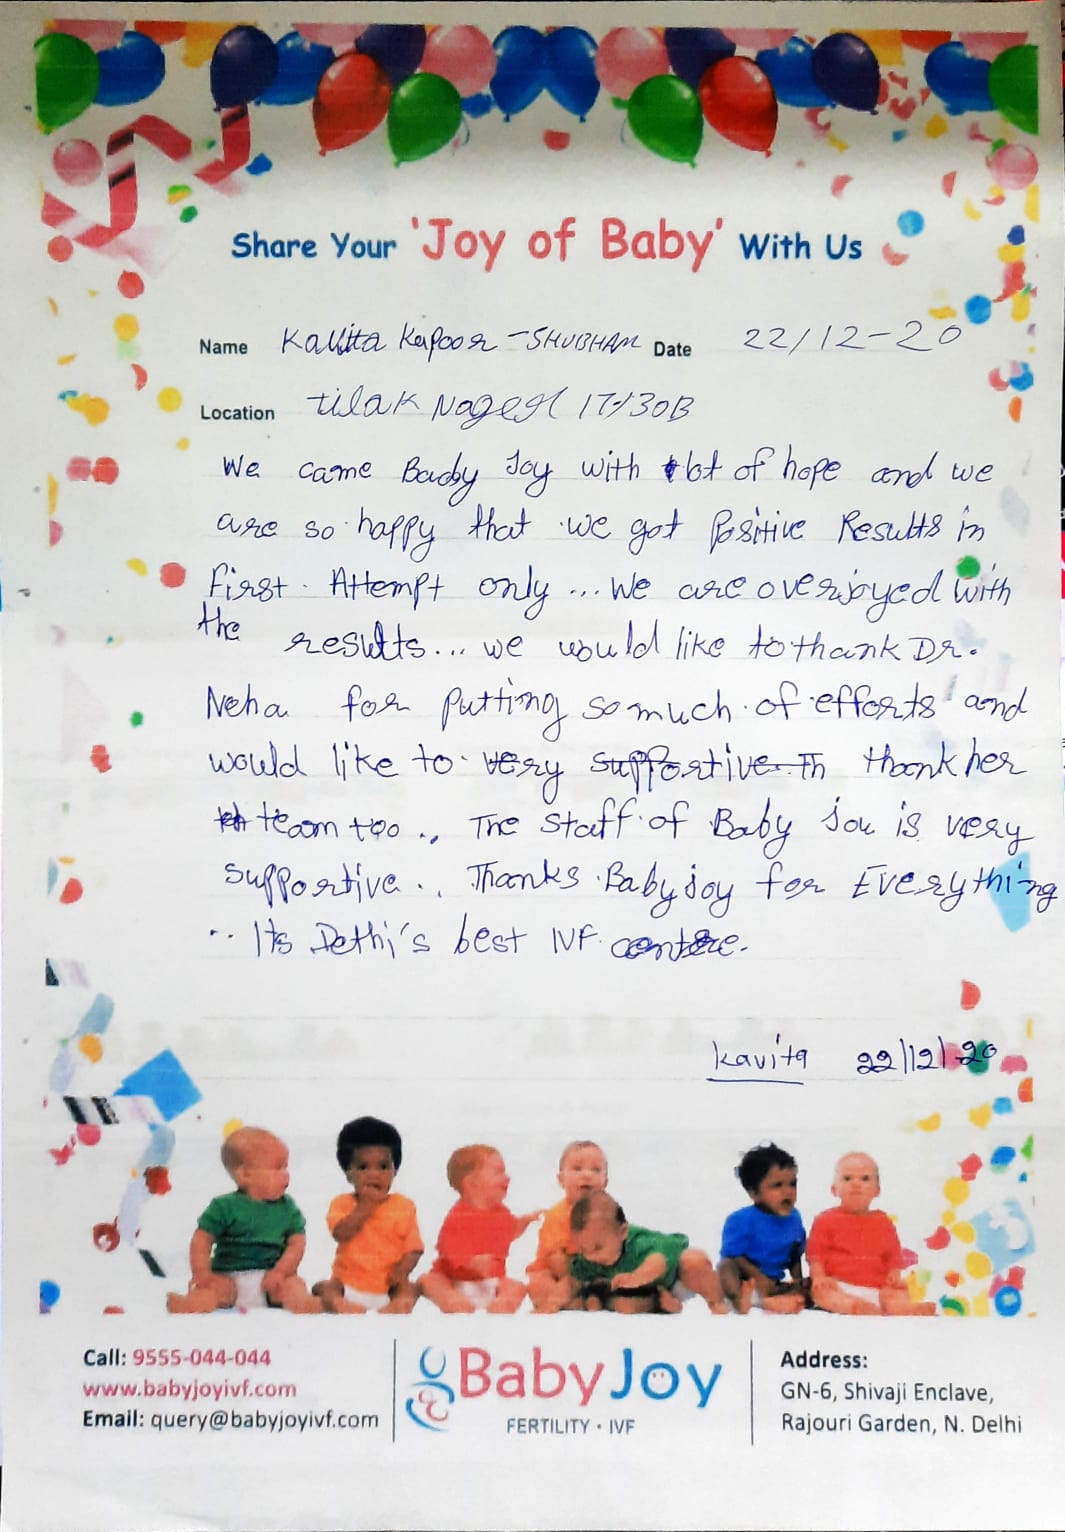 Share Your 'Joy of Baby' With Us
Name Kavita Kapoor - SHUBHAM Date 22/12-20
Location Tilak Nager 17/30B
We came Baby Joy with lot of hope and we
are so happy that we got Positive Results in
First Attempt only ... We are overjoyed with
the results... we would like to thank Dr.
Neha for putting so much of efforts and
would like to very supportive Th thank her
team too .. The Staff of Baby Jou is very
supportive .. Thanks Baby joy for Everything
.. Its Delhi's best IVF centre.
Kavita 22/12/20
Call: 9555-044-044
www.babyjoyivf.com
Email: query@babyjoyivf.com
BabyJoy
FERTILITY • IVF
Address:
GN-6, Shivaji Enclave,
Rajouri Garden, N. Delhi